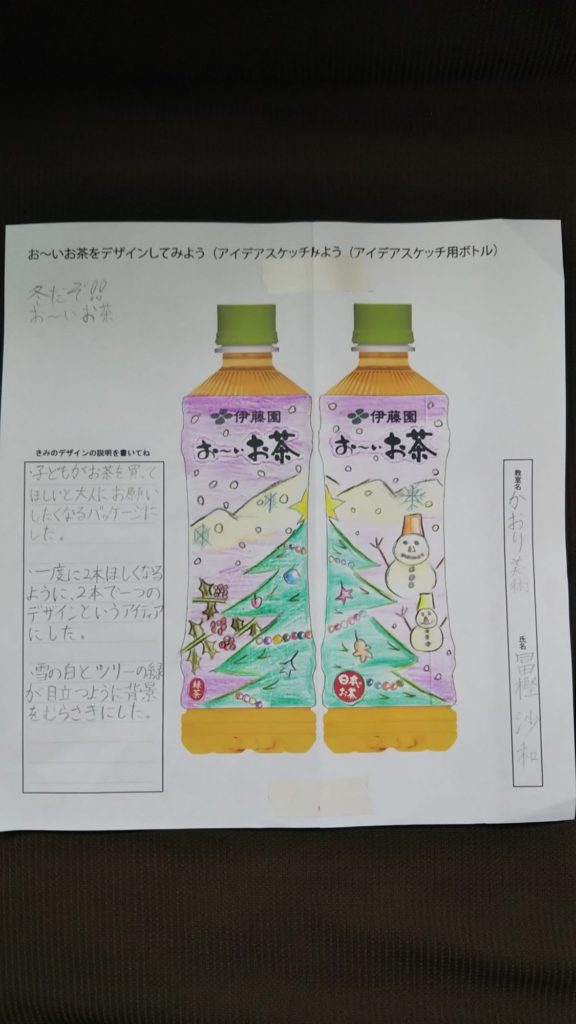 お～いお茶をデザインしてみよう（アイデアスケッチみよう（アイデアスケッチ用ボトル）
冬だぞ!!
お～いお茶
きみのデザインの説明を書いてね
・子どもがお茶を買って
ほしいと大人にお願い
したくなるパッケージに
した。
・一度に2本ほしくなる
ように、2本で一つの
デザインというアイディア
にした。
・雪の白とツリーの緑
が目立つように背景
をむらさきにした。
伊藤園
お～いお茶
緑茶
伊藤園
お～いお茶
日本の
お茶
教室名
かおり美術
氏名
冨樫 沙和